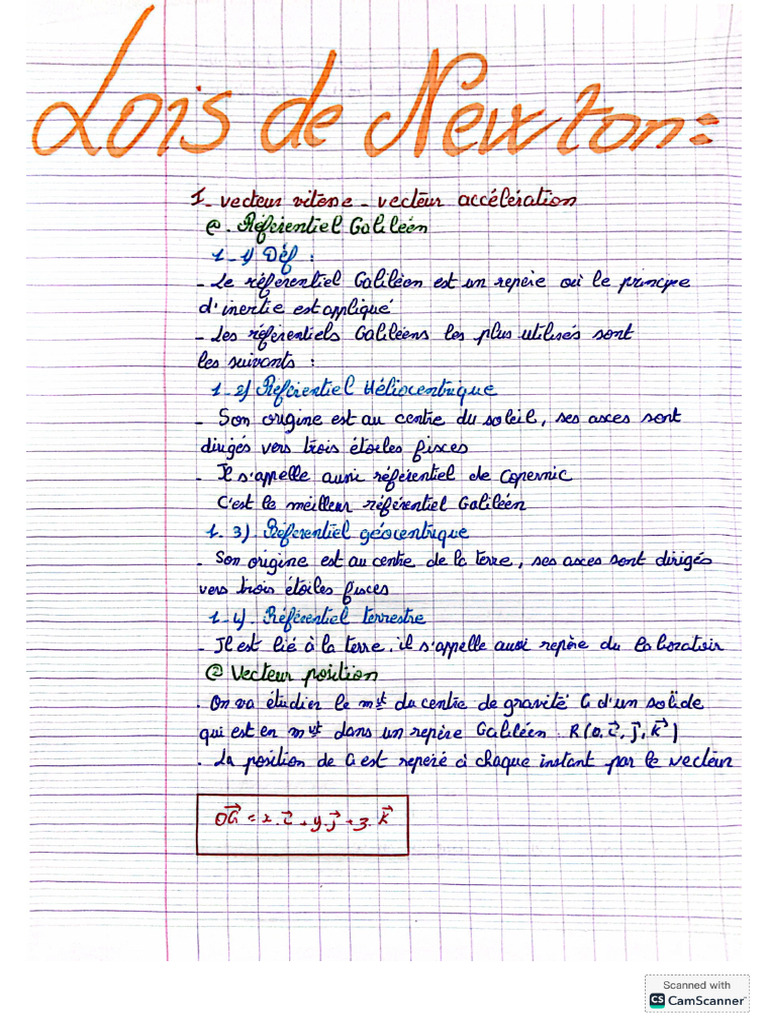 Lois de Newton:
1- vecteur vitesse - vecteur accélération
@. Référentiel Galiléen
1-1) Déf :
- Le référentiel Galiléen est un repère où le principe
d'inertie est appliqué
- Les référentiels Galiléens les plus utilisés sont
les suivants :
1-2) Référentiel Héliocentrique
- Son origine est au centre du soleil, ses asces sont
dirigés vers trois étoiles fisces
- Il s'appelle aussi référentiel de Copernic
C'est le meilleur référentiel Galiléen
1.3). Référentiel géocentrique
- Son origine est au centre de la terre, ses asces sont dirigés
vers trois étoiles fisces
1-4). Référentiel terrestre
- Il est lié à la terre, il s'appelle aussi repère du laboratoir
② Vecteur position
. On va étudier le mvt du centre de gravité G d'un solide
qui est en mvt dans un repère Galiléen : R(0, i⃗, j⃗, k⃗)
. La position de G est reperé à chaque instant par le vecteur
OG⃗ = x.i⃗ + y.j⃗ + z.k⃗
Scanned with
CS CamScanner